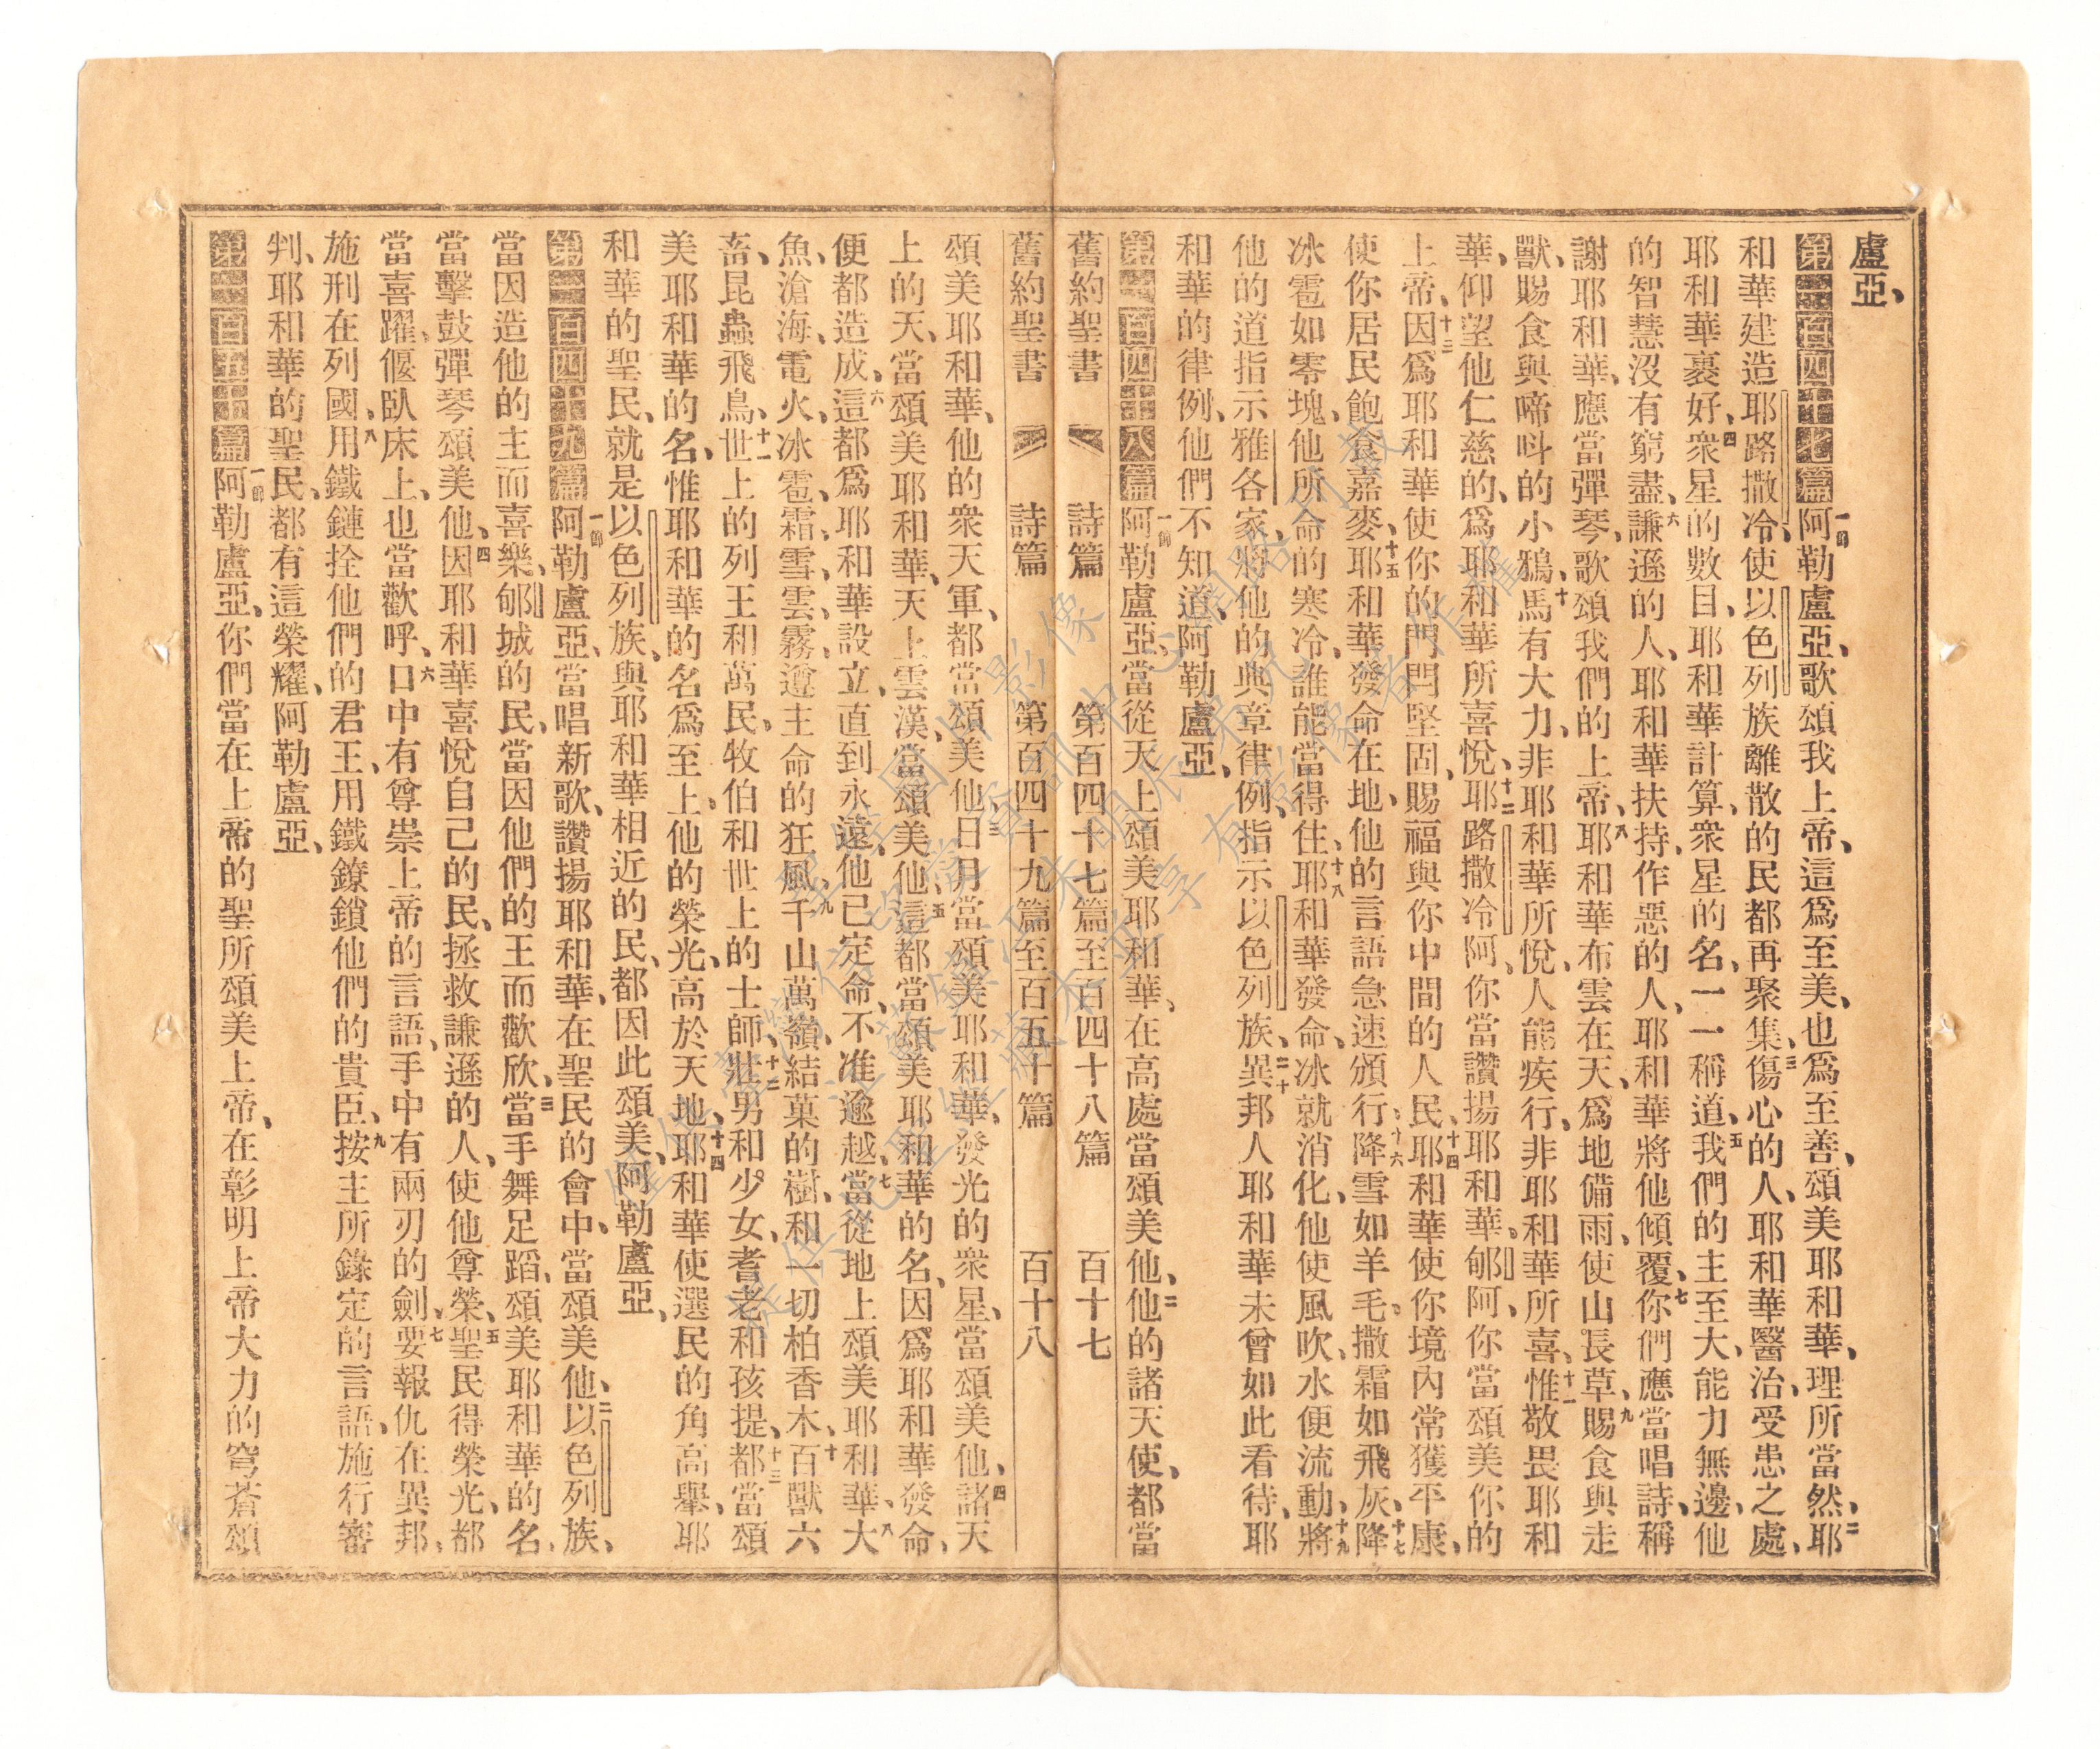 盧亞、
第一百四十七篇一節阿勒盧亞、歌頌我上帝、這爲至美、也爲至善、頌美耶和華、理所當然、二耶
和華建造耶路撒冷、使以色列族離散的民都再聚集、三傷心的人、耶和華醫治、受患之處、
耶和華裹好、四衆星的數目、耶和華計算、衆星的名、一一稱道、五我們的主至大、能力無邊、他
的智慧沒有窮盡、六謙遜的人、耶和華扶持、作惡的人、耶和華將他傾覆、七你們應當唱詩、稱
謝耶和華、應當彈琴、歌頌我們的上帝、八耶和華布雲在天、爲地備雨、使山長草、九賜食與走
獸、賜食與啼呌的小鴉、十馬有大力、非耶和華所悅、人能疾行、非耶和華所喜、十一惟敬畏耶和
華、仰望他仁慈的、爲耶和華所喜悅、十二耶路撒冷阿、你當讚揚耶和華、郇阿、你當頌美你的
上帝、十三因爲耶和華使你的門閂堅固、賜福與你中間的人民、十四耶和華使你境內常獲平康、
使你居民飽食嘉麥、十五耶和華發命在地、他的言語急速頒行、十六降雪如羊毛、撒霜如飛灰、十七降
冰雹如零塊、他所命的寒冷、誰能當得住、十八耶和華發命、冰就消化、他使風吹、水便流動、十九將
他的道指示雅各家、將他的典章律例、指示以色列族、二十異邦人耶和華未曾如此看待、耶
和華的律例、他們不知道、阿勒盧亞、
第一百四十八篇一節阿勒盧亞、當從天上頌美耶和華、在高處當頌美他、二他的諸天使、都當
舊約聖書 詩篇 第百四十七篇至百四十八篇 百十七
舊約聖書 詩篇 第百四十九篇至百五十篇 百十八
頌美耶和華、他的衆天軍、都當頌美他、三日月當頌美耶和華、發光的衆星、當頌美他、四諸天
上的天、當頌美耶和華、天上雲漢、當頌美他、五這都當頌美耶和華的名、因爲耶和華發命、
便都造成、六這都爲耶和華設立、直到永遠、他已定命、不准逾越、七當從地上頌美耶和華、八大
魚、滄海、電火、冰雹、霜、雪、雲、霧、遵主命的狂風、九千山萬嶺結菓的樹、和一切柏香木、十百獸六
畜、昆蟲飛鳥、十一世上的列王和萬民、牧伯和世上的士師、十二壯男和少女、耆老和孩提、十三都當頌
美耶和華的名、惟耶和華的名爲至上、他的榮光、高於天地、十四耶和華使選民的角高舉、耶
和華的聖民、就是以色列族、與耶和華相近的民、都因此頌美、阿勒盧亞、
第一百四十九篇一節阿勒盧亞、當唱新歌、讚揚耶和華、在聖民的會中、當頌美他、二以色列族、
當因造他的主而喜樂、郇城的民、當因他們的王而歡欣、三當手舞足蹈、頌美耶和華的名、
當擊鼓彈琴頌美他、四因耶和華喜悅自己的民、拯救謙遜的人、使他尊榮、五聖民得榮光、都
當喜躍、偃臥床上、也當歡呼、六口中有尊崇上帝的言語、手中有兩刃的劍、七要報仇在異邦、
施刑在列國、八用鐵鏈拴他們的君王、用鐵鐐鎖他們的貴臣、九按主所錄定的言語、施行審
判、耶和華的聖民、都有這榮耀、阿勒盧亞、
第一百五十篇一節阿勒盧亞、你們當在上帝的聖所頌美上帝、在彰明上帝大力的穹蒼頌